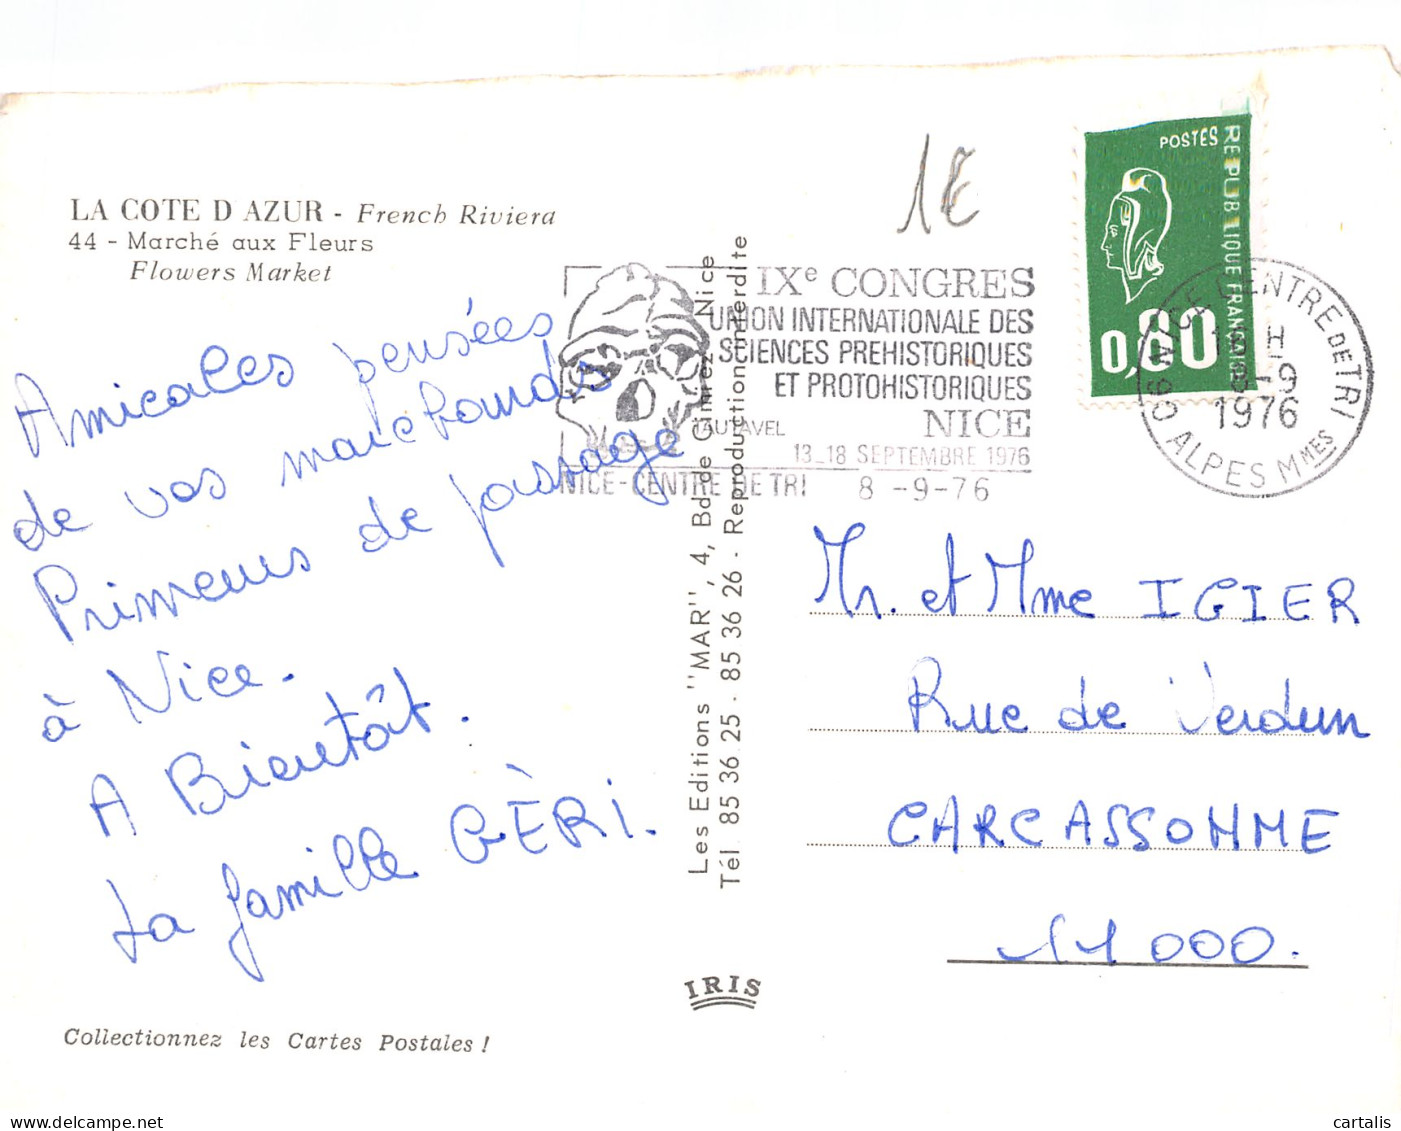 LA COTE D AZUR - French Riviera
44 - Marché aux Fleurs
Flowers Market
Amicales pensées
de vos marchands
Primeurs de passage
à Nice.
A Bientôt.
La famille GÈRI.
Collectionnez les Cartes Postales !
Les Editions "MAR", 4, Bd de Cimiez - Nice
Tél. 85 36 25 - 85 36 26 - Reproduction interdite
IRIS
1€
IXe CONGRES
UNION INTERNATIONALE DES
SCIENCES PREHISTORIQUES
ET PROTOHISTORIQUES
NICE
TAUTAVEL
13_18 SEPTEMBRE 1976
NICE-CENTRE DE TRI 8 -9-76
POSTES
REPUBLIQUE FRANCAISE
0,80
NICE CENTRE DE TRI
H
8-9
1976
06 ALPES MMES
Mr. et Mme IGIER
Rue de Verdun
CARCASSONNE
11000.
cartalis